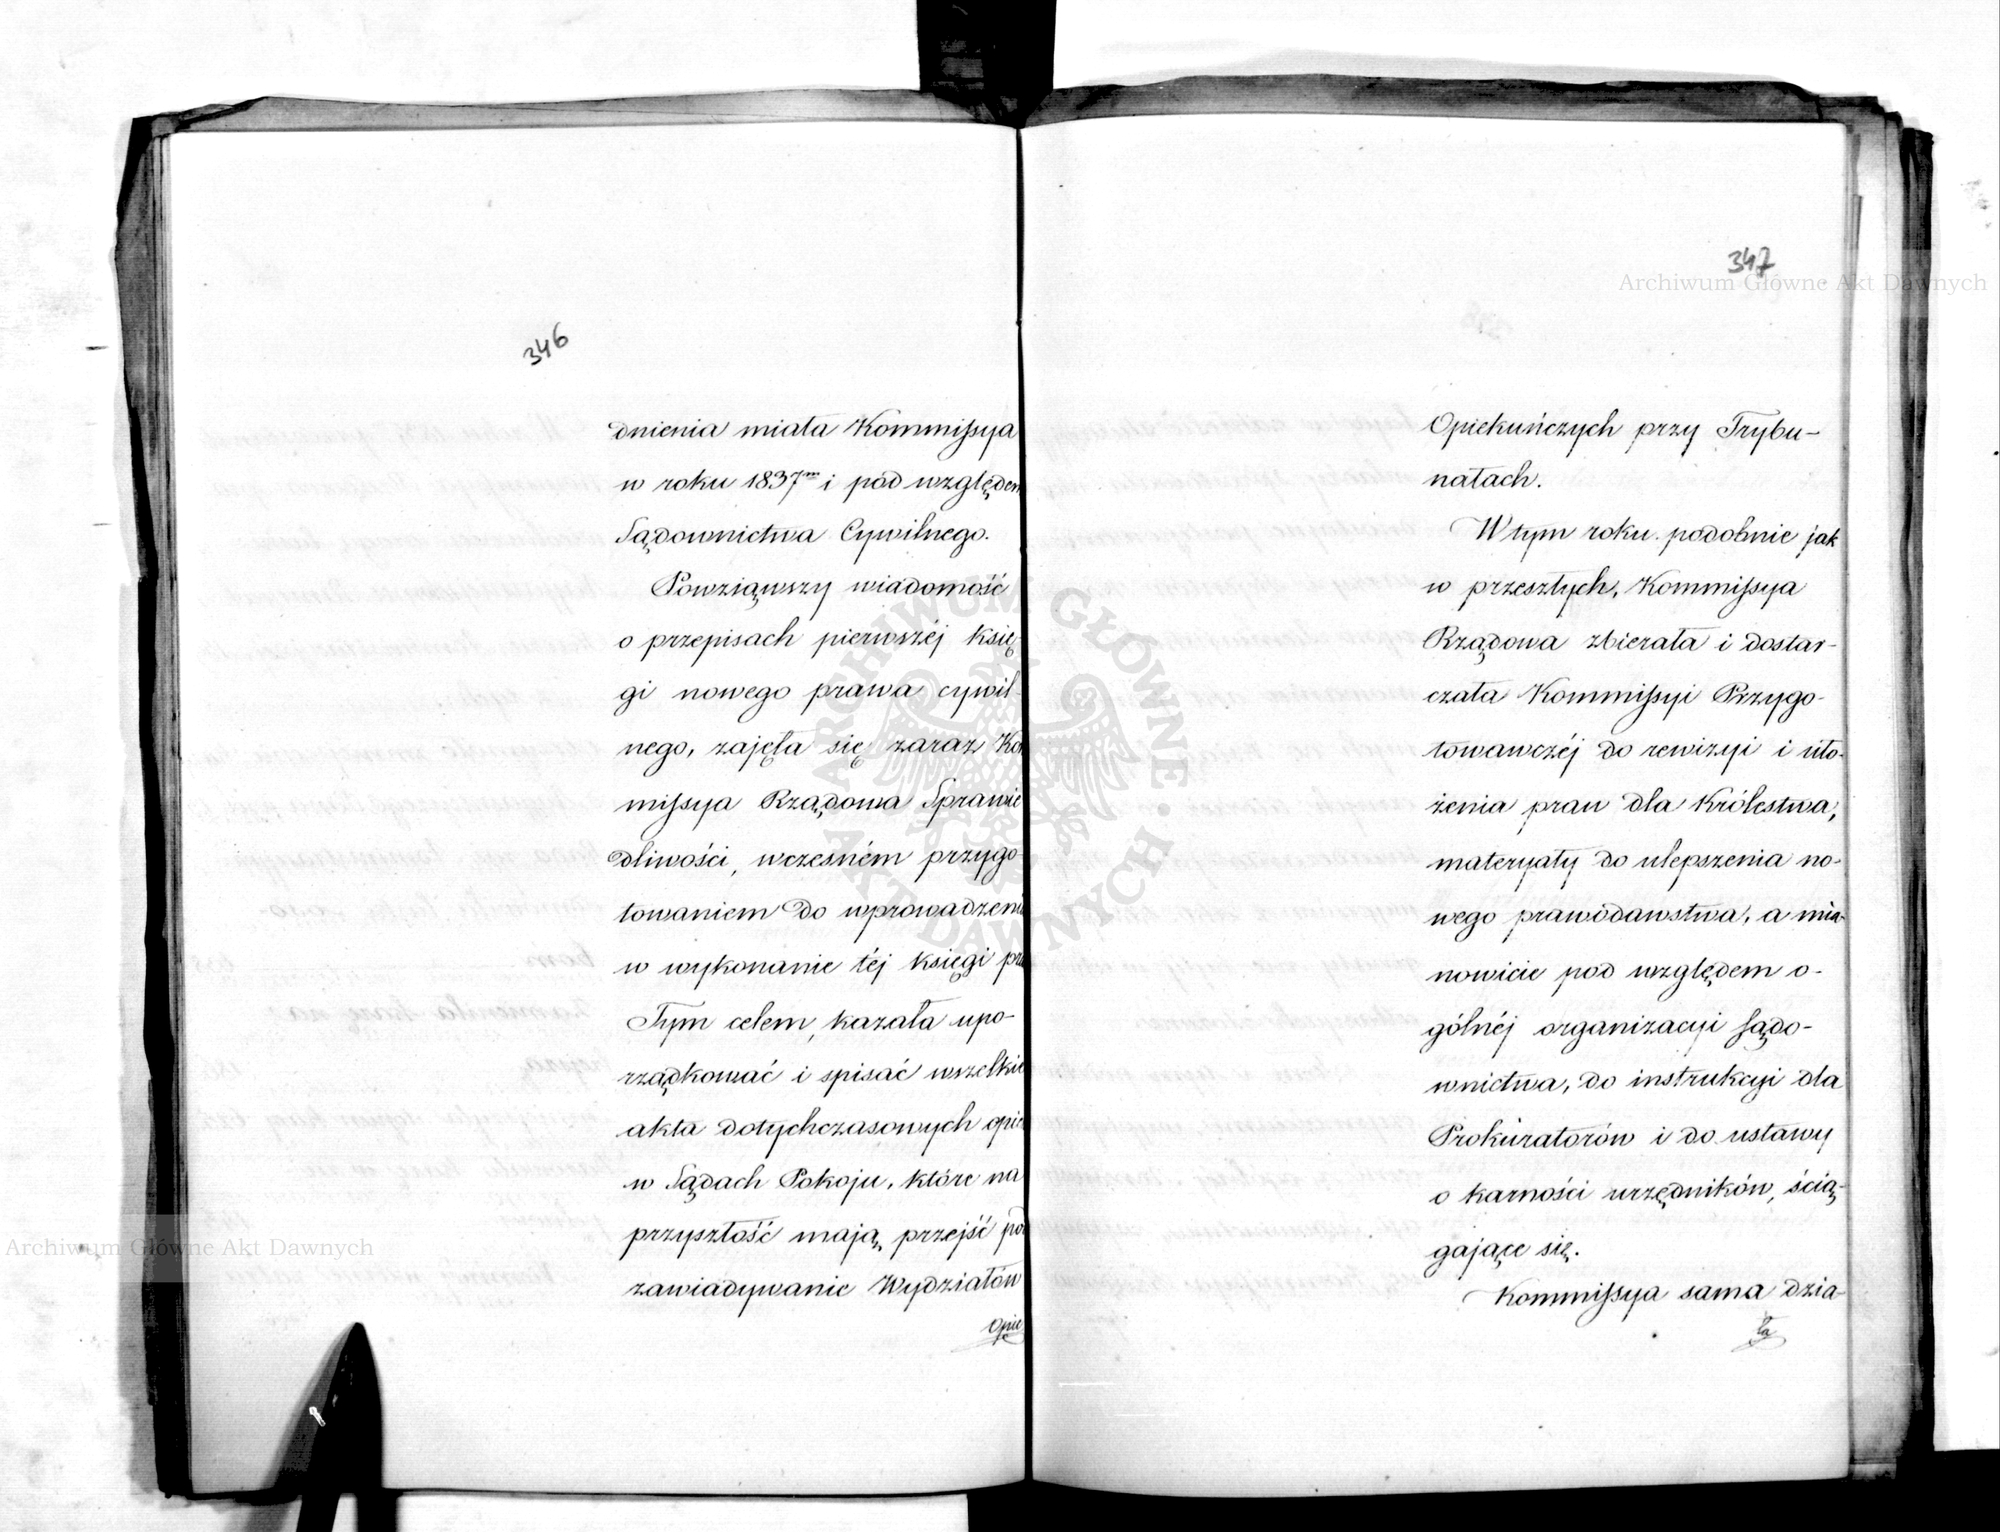 346
dnienia miała Kommissya
w roku 1837m i pod względem
Sądownictwa Cywilnego.
Powziąwszy wiadomość
o przepisach pierwszéj księ-
gi nowego prawa cywil-
nego, zajęła się zaraz Kom
missya Rządowa Sprawie
dliwości, wczesném przygo
towaniem do wprowadzenia
w wykonanie téj księgi pra
Tym celem, kazała upo-
rządkować i spisać wszelkie
akta dotychczasowych opiek
w Sądach Pokoju, które na
przyszłość mają przejść pod
zawiadywanie Wydziałów
Opie
347
Opiekuńczych przy Trybu-
nałach.
W tym roku podobnie jak
w przeszłych, Kommissya
Rządowa zbierała i dostar-
czała Kommissyi Przygo-
towawczéj do rewizyi i uło-
żenia praw dla Królestwa,
materyały do ulepszenia no-
wego prawodawstwa, a mia-
nowicie pod względem o-
gólnéj organizacyi sądo-
wnictwa, do instrukcyi dla
Prokuratorów i do ustawy
o karności urzędników, ścią-
gające się.
Kommissya sama dzia-
ła
Archiwum Główne Akt Dawnych
Archiwum Główne Akt Dawnych
ARCHIWUM GŁÓWNE AKT DAWNYCH